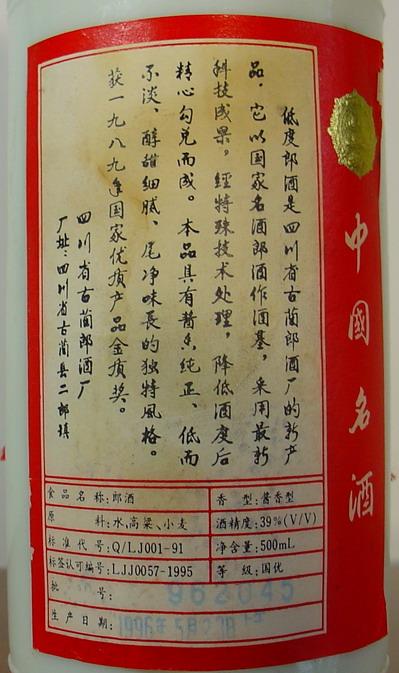 低度郎酒是四川省古蔺郎酒厂的新产
品，它以国家名酒郎酒作酒基，采用最新
科技成果，经特殊技术处理，降低酒度后
精心勾兑而成。本品具有酱香纯正、低而
不淡、醇甜细腻、尾净味長的独特風格。
获一九八九年国家优质产品金质奖。
四川省古蔺郎酒厂
厂址：四川省古蔺县二郎镇
中國名酒
食品名称：郎酒
香型：酱香型
原料：水、高粱、小麦
酒精度：39%(V/V)
标准代号：Q/LJ001-91
净含量：500mL
标签认可编号：LJJ0057-1995
等级：国优
批号：962045
生产日期：1996年5月23日